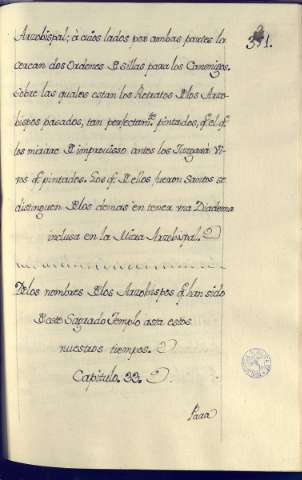 331.
Arzobispal; à cuios lados por ambas partes la
cercan dos Ordenes de sillas para los Canonigos.
Sobre las quales estan los Retratos de los Arzo-
bispos pasados, tan perfectamte. pintados, q̃. el q̃.
los mirare de improuisso antes los Juzgará Vi-
vos q̃. pintados. Los q̃. de ellos fueron Santos se
distinguen de los demas en tener vna Diadema
inclusa en la Mitra Arzobispal.
De los nombres de los Arzobispos q̃. han sido
de este Sagrado Templo asta estos
nuestros tiempos.
Capitulo. 33.
Para